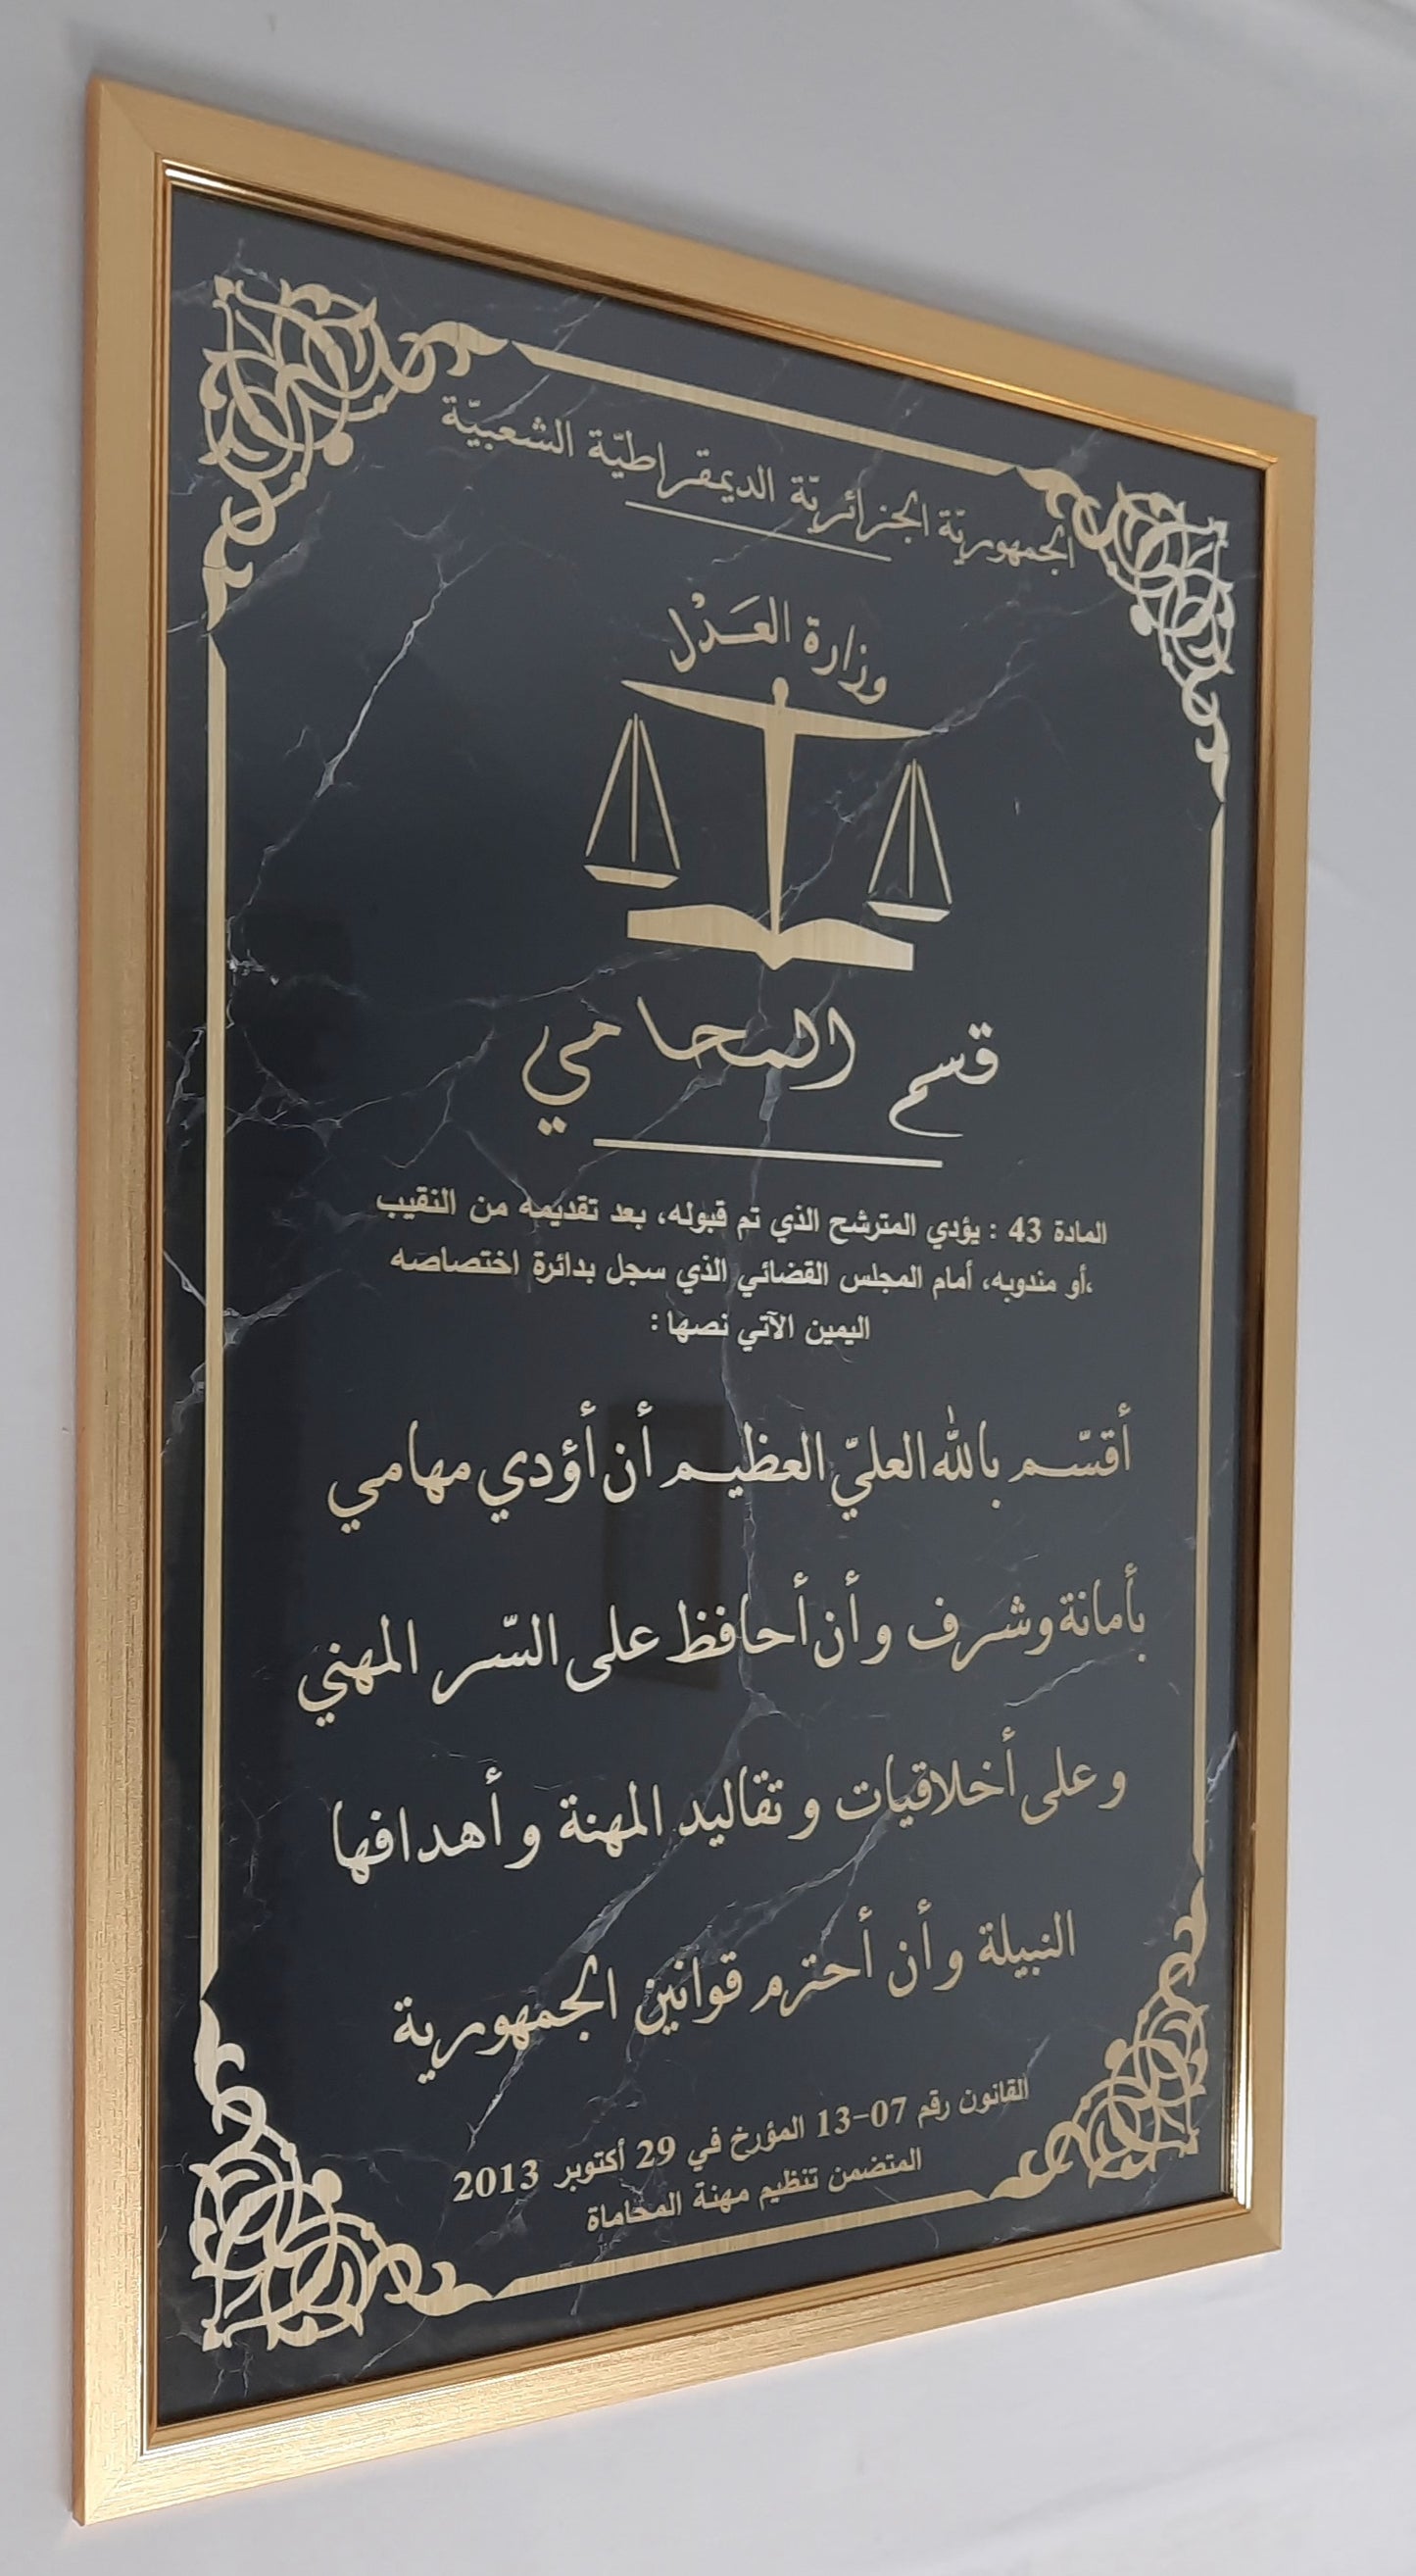 الجمهوريّة الجزائريّة الديمقراطيّة الشعبيّة
وزارة العَدْل
قسم المحامي
المادة 43 : يؤدي المترشح الذي تم قبوله، بعد تقديمه من النقيب
،أو مندوبه، أمام المجلس القضائي الذي سجل بدائرة اختصاصه
اليمين الآتي نصها :
أقسّم بالله العليّ العظيم أن أؤدي مهامي
بأمانة وشرف وأن أحافظ على السّر المهني
وعلى أخلاقيات وتقاليد المهنة وأهدافها
النبيلة وأن أحترم قوانين الجمهورية
القانون رقم 07-13 المؤرخ في 29 أكتوبر 2013
المتضمن تنظيم مهنة المحاماة